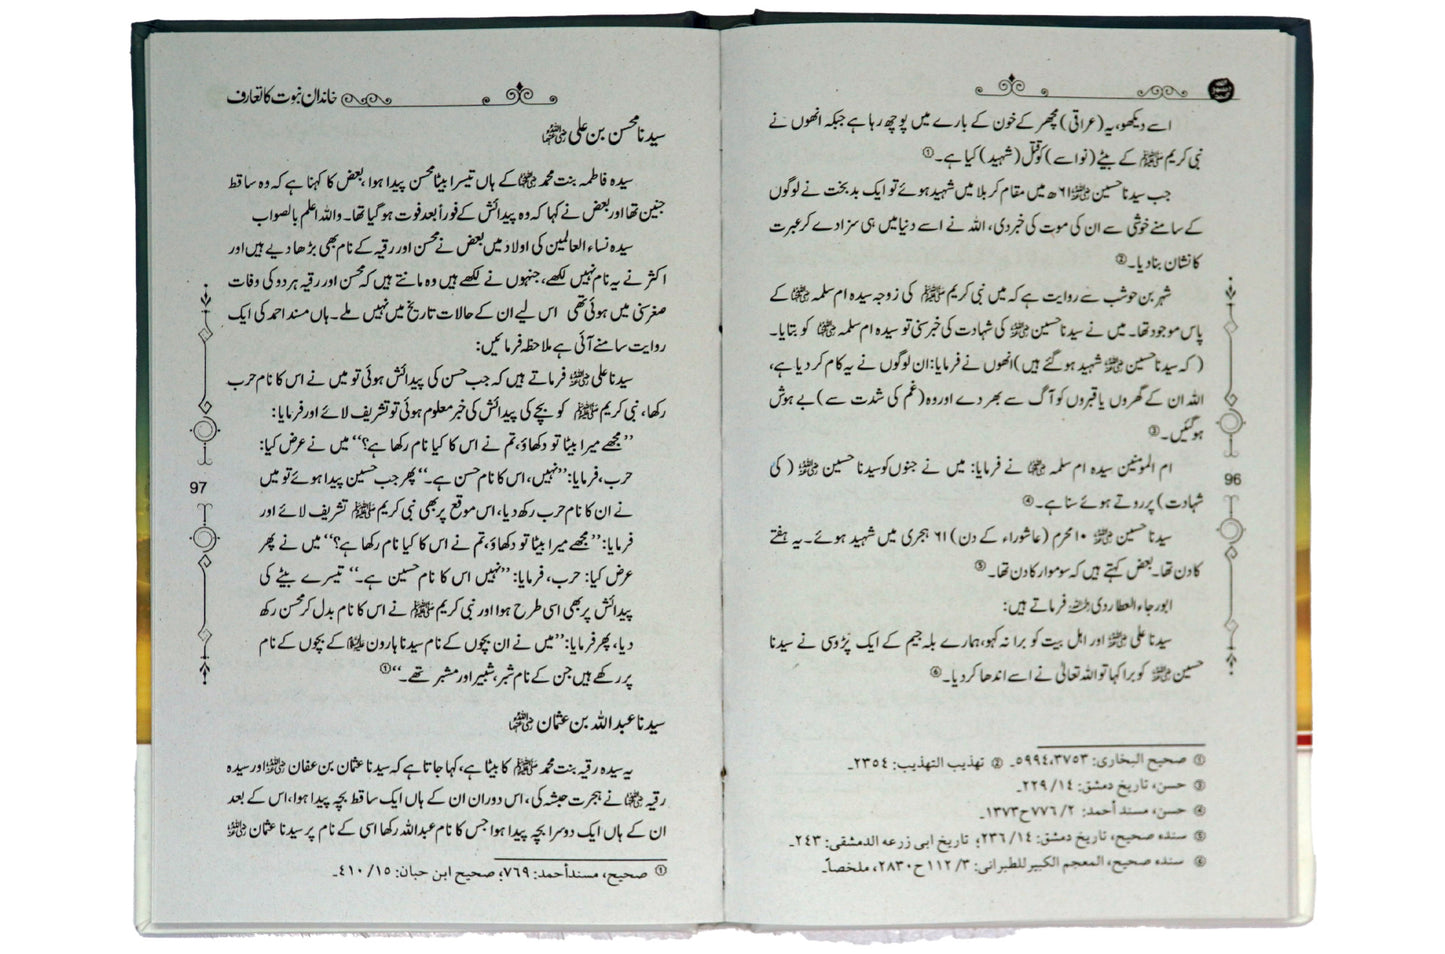 اسے دیکھو، یہ (عراقی) مچھر کے خون کے بارے میں پوچھ رہا ہے جبکہ انھوں نے
نبی کریم ﷺ کے بیٹے (نواسے) کو قتل (شہید) کیا ہے۔ ①
جب سیدنا حسین رضی اللہ عنہ ۶۱ھ میں مقام کربلا میں شہید ہوئے تو ایک بدبخت نے لوگوں
کے سامنے خوشی سے ان کی موت کی خبر دی، اللہ نے اسے دنیا میں ہی سزا دے کر عبرت
کا نشان بنا دیا۔ ②
شہر بن حوشب سے روایت ہے کہ میں نبی کریم ﷺ کی زوجہ سیدہ ام سلمہ رضی اللہ عنہا کے
پاس موجود تھا۔ میں نے سیدنا حسین رضی اللہ عنہ کی شہادت کی خبر سنی تو سیدہ ام سلمہ رضی اللہ عنہا کو بتایا۔
(کہ سیدنا حسین رضی اللہ عنہ شہید ہو گئے ہیں) انھوں نے فرمایا: ان لوگوں نے یہ کام کر دیا ہے،
اللہ ان کے گھروں یا قبروں کو آگ سے بھر دے اور وہ (غم کی شدت سے) بے ہوش
ہو گئیں۔ ③
ام المومنین سیدہ ام سلمہ رضی اللہ عنہا نے فرمایا: میں نے جنوں کو سیدنا حسین رضی اللہ عنہ (کی
شہادت) پر روتے ہوئے سنا ہے۔ ④
سیدنا حسین رضی اللہ عنہ ۱۰ محرم (عاشوراء کے دن) ۶۱ ہجری میں شہید ہوئے۔ یہ ہفتے
کا دن تھا۔ بعض کہتے ہیں کہ سوموار کا دن تھا۔ ⑤
ابو رجاء العطاردی رحمہ اللہ فرماتے ہیں:
سیدنا علی رضی اللہ عنہ اور اہل بیت کو برا نہ کہو، ہمارے بلہجیم کے ایک پڑوسی نے سیدنا
حسین رضی اللہ عنہ کو برا کہا تو اللہ تعالیٰ نے اسے اندھا کر دیا۔ ⑥
96
① صحیح البخاری: ۳۷۵۳، ۵۹۹۴۔ ② تهذیب التهذیب: ۲۳۵۴۔
③ حسن، تاریخ دمشق: ۱۴/ ۲۲۹۔
④ حسن، مسند أحمد: ۲/ ۷۷۶ ح ۱۳۷۳۔
⑤ سنده صحیح، تاریخ دمشق: ۱۴/ ۲۳۶؛ تاریخ ابی زرعه الدمشقی: ۲۴۳۔
⑥ سنده صحیح، المعجم الکبیر للطبرانی: ۳/ ۱۱۲ ح ۲۸۳۰، ملخصاً۔
خاندان نبوت کا تعارف
سیدنا محسن بن علی رضی اللہ عنہما
سیدہ فاطمہ بنت محمد رضی اللہ عنہا کے ہاں تیسرا بیٹا محسن پیدا ہوا بعض کا کہنا ہے کہ وہ ساقط
جنین تھا اور بعض نے کہا کہ وہ پیدائش کے فوراً بعد فوت ہو گیا تھا۔ واللہ اعلم بالصواب
سیدہ نساء العالمین کی اولاد میں بعض نے محسن اور رقیہ کے نام بھی بڑھا دیے ہیں اور
اکثر نے یہ نام نہیں لکھے، جنہوں نے لکھے ہیں وہ مانتے ہیں کہ محسن اور رقیہ ہر دو کی وفات
صغر سنی میں ہوئی تھی اس لیے ان کے حالات تاریخ میں نہیں ملے۔ ہاں مسند احمد کی ایک
روایت سامنے آئی ہے ملاحظہ فرمائیں:
سیدنا علی رضی اللہ عنہ فرماتے ہیں کہ جب حسن کی پیدائش ہوئی تو میں نے اس کا نام حرب
رکھا، نبی کریم ﷺ کو بچے کی پیدائش کی خبر معلوم ہوئی تو تشریف لائے اور فرمایا:
’’مجھے میرا بیٹا تو دکھاؤ، تم نے اس کا کیا نام رکھا ہے؟‘‘ میں نے عرض کیا:
حرب، فرمایا: ’’نہیں، اس کا نام حسن ہے۔‘‘ پھر جب حسین پیدا ہوئے تو میں
نے ان کا نام حرب رکھ دیا، اس موقع پر بھی نبی کریم ﷺ تشریف لائے اور
فرمایا: ’’مجھے میرا بیٹا تو دکھاؤ، تم نے اس کا کیا نام رکھا ہے؟‘‘ میں نے پھر
عرض کیا: حرب، فرمایا: ’’نہیں اس کا نام حسین ہے۔‘‘ تیسرے بیٹے کی
پیدائش پر بھی اسی طرح ہوا اور نبی کریم ﷺ نے اس کا نام بدل کر محسن رکھ
دیا، پھر فرمایا: ’’میں نے ان بچوں کے نام سیدنا ہارون علیہ السلام کے بچوں کے نام
پر رکھے ہیں جن کے نام شبر، شبیر اور مشبر تھے۔‘‘ ①
سیدنا عبد اللہ بن عثمان رضی اللہ عنہما
یہ سیدہ رقیہ بنت محمد ﷺ کا بیٹا ہے، کہا جاتا ہے کہ سیدنا عثمان بن عفان رضی اللہ عنہ اور سیدہ
رقیہ رضی اللہ عنہا نے ہجرت حبشہ کی، اس دوران ان کے ہاں ایک ساقط بچہ پیدا ہوا، اس کے بعد
ان کے ہاں ایک دوسرا بچہ پیدا ہوا جس کا نام عبداللہ رکھا اسی کے نام پر سیدنا عثمان رضی اللہ عنہ
97
① صحیح، مسند أحمد: ۷۶۹؛ صحیح ابن حبان: ۱۵/ ۴۱۰۔